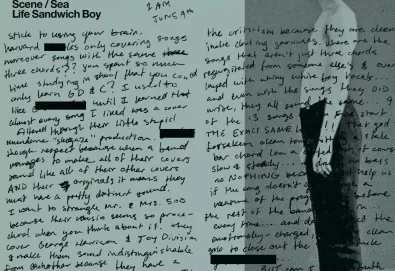 Scene / Sea
Life Sandwich Boy
1 AM
JUNE 9th
stick to using your brain.
harvard les only covering songs
moreover songs with the same
three chords?? you spent so much
time studying @ shool that you could
only learn G D & C? I used to
like until I learned that
almost every song I liked was a cover
filtered through their little stupid
mundane "shoegaze" production
though respect because when a band
manages to make all of their covers
sound like all of their other covers
AND their originals it means they
must have a pretty distinct sound.
I want to strangle Mr. & Mrs. 500
because their version seems so proce-
dural when you think about it. they
cover George Harrison & Joy Division
& make them sound indistinguishable
from eachother because they have a
the criticism because they are clean
juke darling garnists. those are the
songs that aren't just three chords
regurgitated from someone else's & over
layed with whiny white boy vocals.
and even with the songs they DID
write, they all the same... 9
of the 13 songs start
THE EXACt SAME
forsaken clean stale
bar chord of course
slow & steady... no bass
no NOTHING help us
if the song doesn't
reason of the before
the rest of the band in
every time... and get the
emotionally-charged clean
to close out the
BUT south